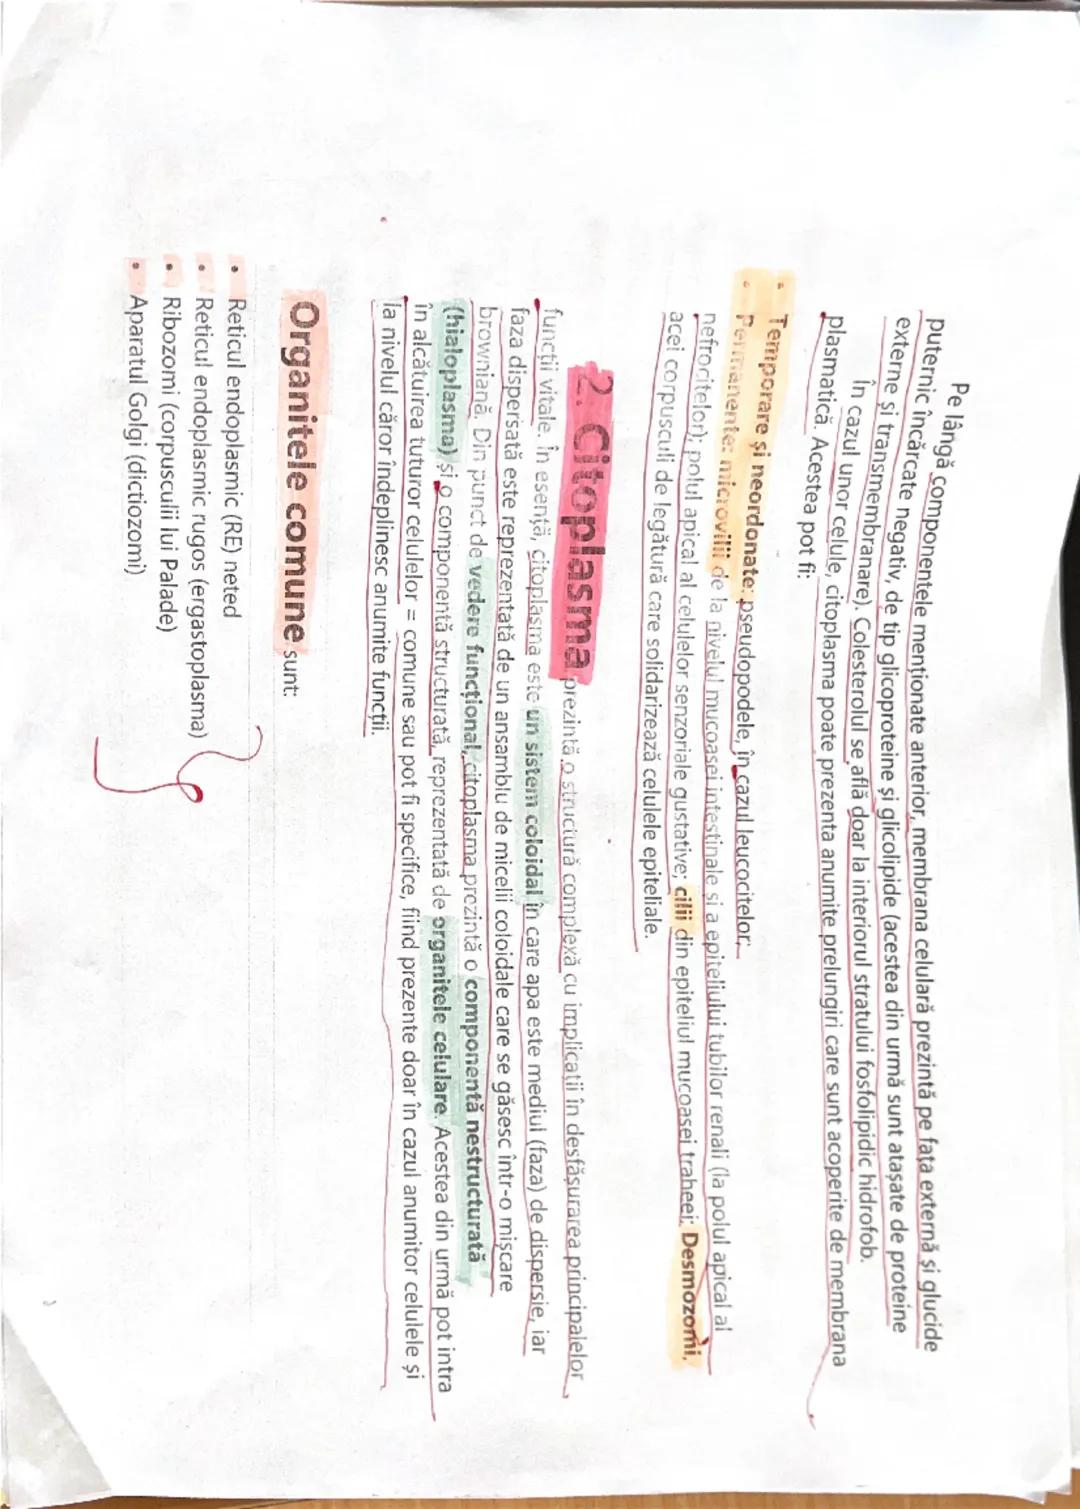 Pe lângă componentele menționate anterior, membrana celulară prezintă pe fața externă și glucide
puternic încărcate negativ, de tip glicoproteine și glicolipide (acestea din urmă sunt atașate de proteine
externe și transmembranare). Colesterolul se află doar la interiorul stratului fosfolipidic hidrofob.
În cazul unor celule, citoplasma poate prezenta anumite prelungiri care sunt acoperite de membrana
plasmatică. Acestea pot fi:
• Temporare și neordonate: pseudopodele, în cazul leucocitelor;
• Permanente: microvilii de la nivelul mucoasei intestinale și a epiteliului tubilor renali (la polul apical al
nefrocitelor); polul apical al celulelor senzoriale gustative; cilii din epiteliul mucoasei traheei; Desmozomi,
acei corpusculi de legătură care solidarizează celulele epiteliale.
2. Citoplasma prezintă o structură complexă cu implicații în desfășurarea principalelor
funcții vitale. În esență, citoplasma este un sistem coloidal în care apa este mediul (faza) de dispersie, iar
faza dispersată este reprezentată de un ansamblu de micelii coloidale care se găsesc într-o mișcare
browniană. Din punct de vedere funcțional, citoplasma prezintă o componentă nestructurată
(hialoplasma) și o componentă structurată, reprezentată de organitele celulare. Acestea din urmă pot intra
în alcătuirea tuturor celulelor = comune sau pot fi specifice, fiind prezente doar în cazul anumitor celulele și
la nivelul căror îndeplinesc anumite funcții.
Organitele comune sunt:
• Reticul endoplasmic (RE) neted
• Reticul endoplasmic rugos (ergastoplasma)
• Ribozomi (corpusculii lui Palade)
• Aparatul Golgi (dictiozomi)